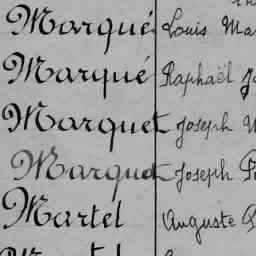 Marqué Louis Ma
Marqué Raphaël J
Marquet Joseph
Marquet Joseph
Martel Auguste